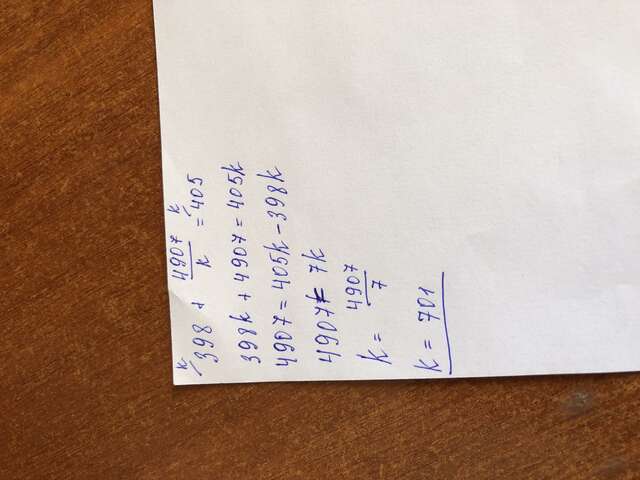 k/ 398 + 4907/k = 405 k/
398k + 4907 = 405k
4907 = 405k - 398k
4907 = 7k
k = 4907/7
k = 701